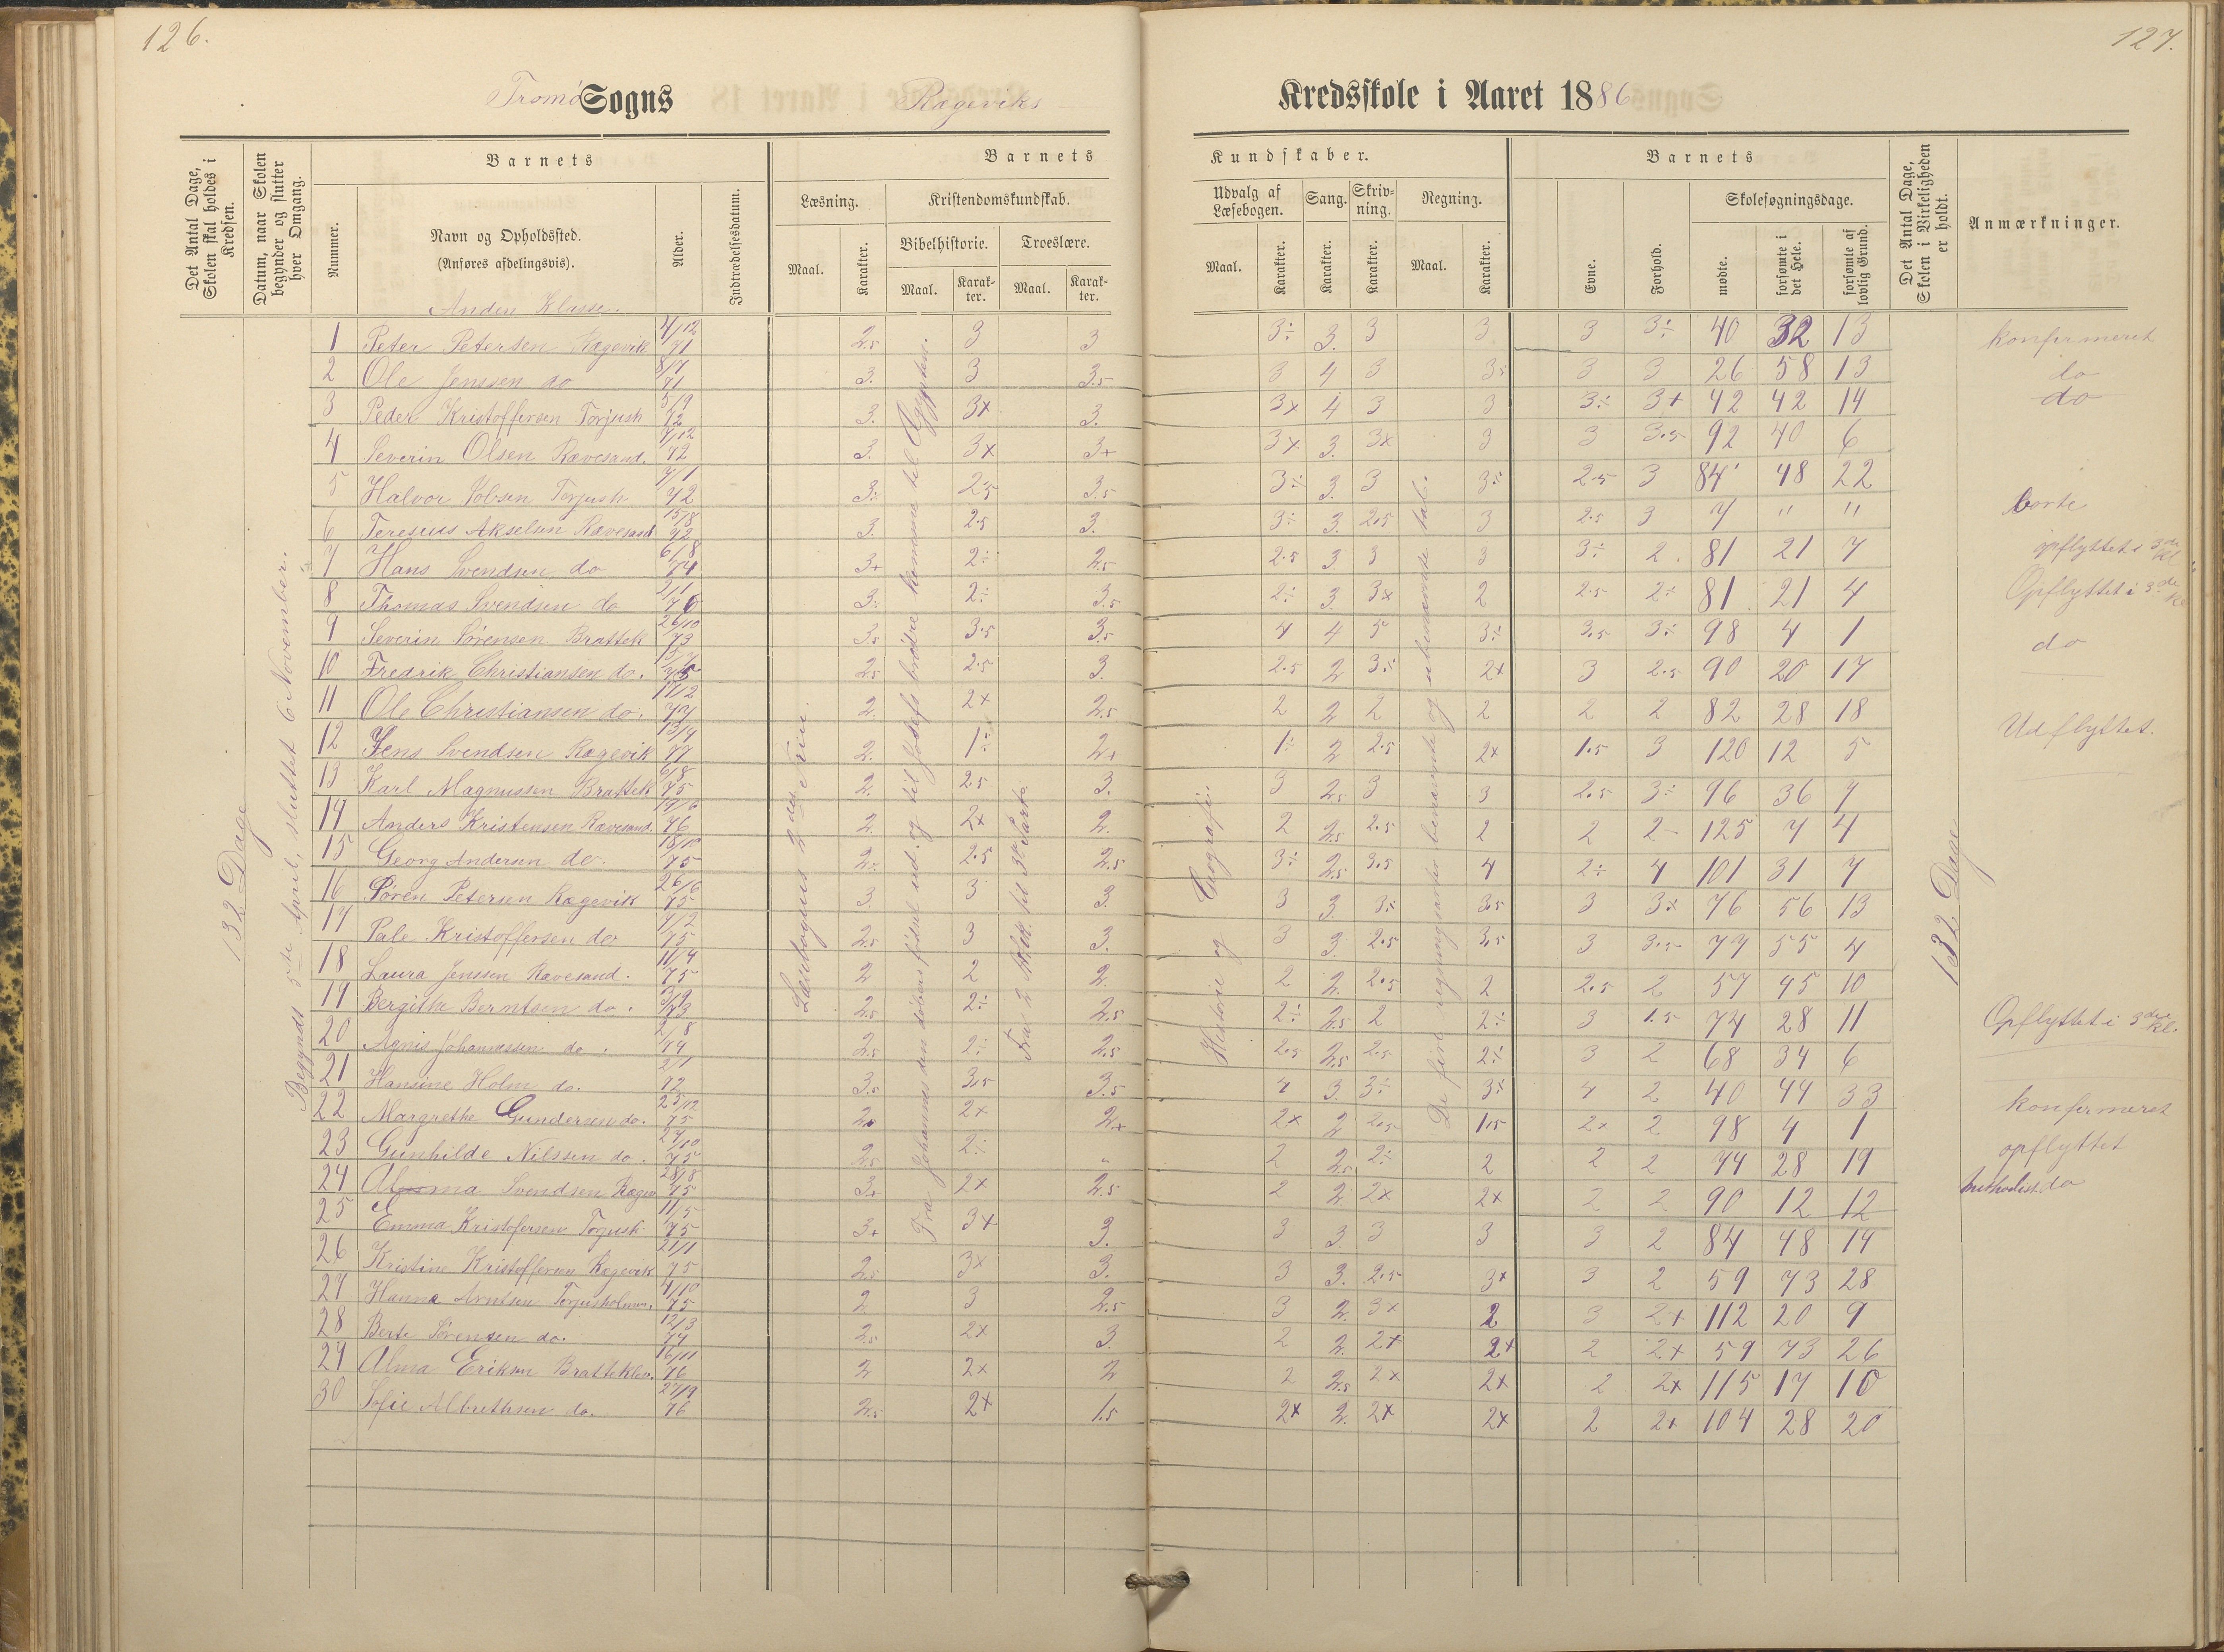 126.
127.
Tromø Sogns Rægeviks Kredsskole i Aaret 1886
Det Antal Dage, Skolen skal holdes i Kredsen.
Datum, naar Skolen begynder og slutter hver Omgang.
Barnets
Nummer.
Navn og Opholdssted.
(Anføres afdelingsvis).
Alder.
Indtrædelsesdatum.
Barnets
Læsning.
Maal.
Karakter.
Kristendomskundskab.
Bibelhistorie.
Maal.
Karakter.
Troeslære.
Maal.
Karakter.
Kundskaber.
Udvalg af Læsebogen.
Maal.
Karakter.
Sang.
Karakter.
Skrivning.
Karakter.
Regning.
Maal.
Karakter.
Barnets
Evne.
Forhold.
Skolesøgningsdage.
mødte.
forsømte i det Hele.
forsømte af lovlig Grund.
Det Antal Dage, Skolen i Virkeligheden er holdt.
Anmærkninger.
Anden Klasse.
132 Dage
Begyndt 5te April, sluttet 6 November.
Læsebogens 2den Trin.
Fra Johannes den døbers fødsel ud og til Josefs brødre komme til Ægypten.
Historie og Geografi.
De fire regningsarter benævnte og ubenævnte tal.
132 Dage
1 Peter Petersen Rægevik 4/12 71 2.5 3 3 3÷ 3. 3 3 3 3÷ 40 32 13 konfirmeret
2 Ole Jenssen do 8/7 71 3. 3 3.5 3 4 3 3.5 3 3 26 58 13 do
3 Peder Kristoffersen Torjush 5/9 72 3. 3x 3. 3x 4 3 3 3÷ 3+ 42 42 14 do
4 Severin Olsen Rævesand. 7/12 72 3. 3x 3+ 3x 3. 3x 3 3 3.5 92 40 6
5 Halvor Jobsen Torjush 7/1 72 3÷ 2.5 3.5 3÷ 3. 3 3÷ 2.5 3 84 48 22
6 Teresius Akselsen Rævesand 15/8 72 3. 2.5 3. 3÷ 3. 2.5 3 2.5 3 7 " " borte
7 Hans Svendsen do 6/8 74 3+ 2÷ 2.5 2.5 3 3 3 3÷ 2. 81 21 7 opflyttet i 3de kl
8 Thomas Svendsen do 2/1 76 3÷ 2÷ 3.5 2÷ 3. 3x 2 2.5 2÷ 81 21 4 Opflyttet i 3de kl
9 Severin Sørensen Brattek 26/10 73 3.5 3.5 3.5 4 4 5 3÷ 3.5 3÷ 98 4 1 do
10 Fredrik Christiansen do. 75 2.5 2.5 3. 2.5 2 3÷ 2x 3 2.5 90 20 17
11 Ole Christiansen do. 17/12 77 2. 2x 2.5 2 2 2 2 2 2 82 28 18 Udflyttet.
12 Jens Svendsen Rægevik 13/9 77 2. 1÷ 2+ 1÷ 2 2.5 2x 1.5 3 120 12 5
13 Karl Magnussen Brattek 6/8 75 2. 2.5 3. 3 2.5 3 3 2.5 3÷ 96 36 7
14 Anders Kristensen Rævesand. 17/6 76 2. 2x 2. 2 2.5 2.5 2 2 2 125 7 4
15 Georg Andersen do. 18/10 75 2÷ 2.5 2.5 3÷ 2.5 3.5 4 2÷ 4 101 31 7
16 Søren Petersen Rægevik 26/6 75 3. 3 3. 3 3. 3÷ 3.5 3 3x 76 56 13
17 Pale Kristoffersen do 7/2 75 2.5 3 3. 3 3. 2.5 3.5 3 3.5 77 55 4
18 Laura Jenssen Rævesand. 11/4 75 2 2 2. 2 2. 2.5 2 2.5 2 57 45 10
19 Bergithe Berntsen do. 3/9 73 2.5 2÷ 2.5 2÷ 2.5 2 2÷ 3 1.5 74 28 11 Opflyttet i 3die kl.
20 Agnis Johannessen do. 2/8 74 2.5 2÷ 2.5 2.5 2.5 2.5 2÷ 3 2 68 34 6
21 Hansine Holm do. 2/1 72 3.5 3.5 3.5 4 3. 3÷ 3x 4 2 40 44 33 konfirmeret
22 Margrethe Gundersen do. 25/12 75 2. 2x 2+ 2x 2 2.5 1.5 2x 2 98 4 1 opflyttet
23 Gunhilde Nilssen do. 27/10 75 2.5 2÷ 2 2.5 2÷ 2 2 2 74 28 19
24 Alma Svendsen Rægev 28/8 75 3+ 2x 2.5 2 2. 2x 2x 2 2 90 12 12 methodist. do
25 Emma Kristofersen Torjush 11/5 75 3+ 3x 3. 3 3. 3 3 3 2 84 48 14
26 Kristine Kristoffersen Rægevik 21/1 75 2.5 3x 3. 3 3. 2.5 3x 3 2 59 73 28
27 Hanna Arntsen Torjusholmen. 4/10 75 2. 3 2.5 3 2. 3x 2 3 2+ 112 20 9
28 Berte Sørensen do. 12/3 77 2.5 2x 3. 2 2. 2x 2x 2 2x 59 73 26
29 Alma Eriksen Bratteklev. 16/11 76 2 2x 2 2 2.5 2x 2x 2 2x 115 17 10
30 Sofie Albrethsen do. 27/9 76 2.5 2x 1.5 2x 2. 2x 2x 2 2x 104 28 20